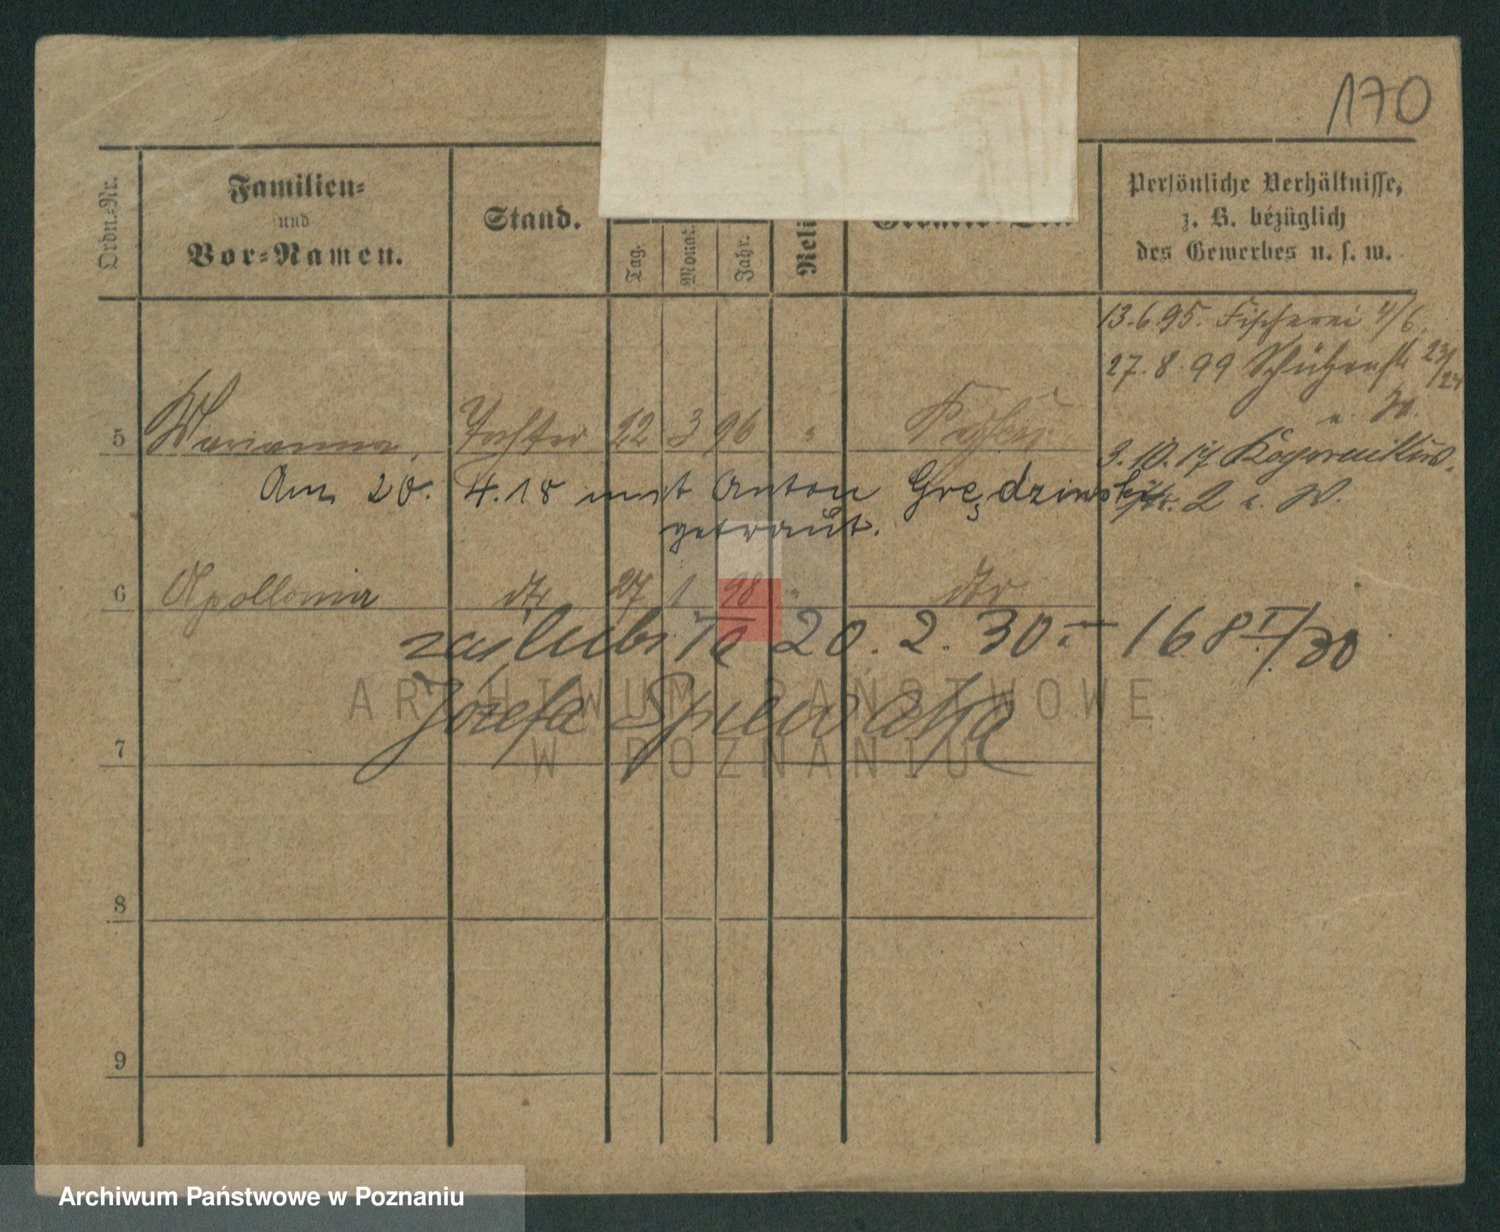 170
Ordn.-Nr.
Familien-
und
Vor-Namen.
Stand.
Tag.
Monat.
Jahr.
Reli
Persönliche Verhältnisse,
z. B. bezüglich
des Gewerbes u. s. w.
13.6.95. Fischerei 4/6.
27.8.99 Schützenstr 23/24
5 Marianna, Tochter 22 3 96 "
3.10.17
Am 20. 4.18 mit Anton Grędzinski
getraut.
6 Apollonia dto 27 1 98 " dto
zaślubiła 20. 2. 30 168 I/30
Józefa Śpiewaka
ARCHIWUM PAŃSTWOWE
W POZNANIU
7
8
9
Archiwum Państwowe w Poznaniu